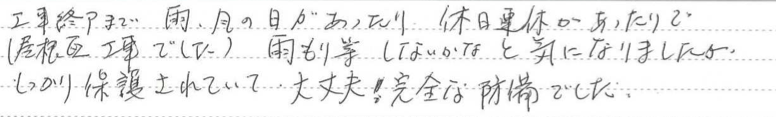 工事終了まで 雨、風の日があったり 休日連休があったりで
(屋根工事でした) 雨もり等 しないかな と気になりましたが、
しっかり保護されていて 大丈夫!! 完全な防備でした。